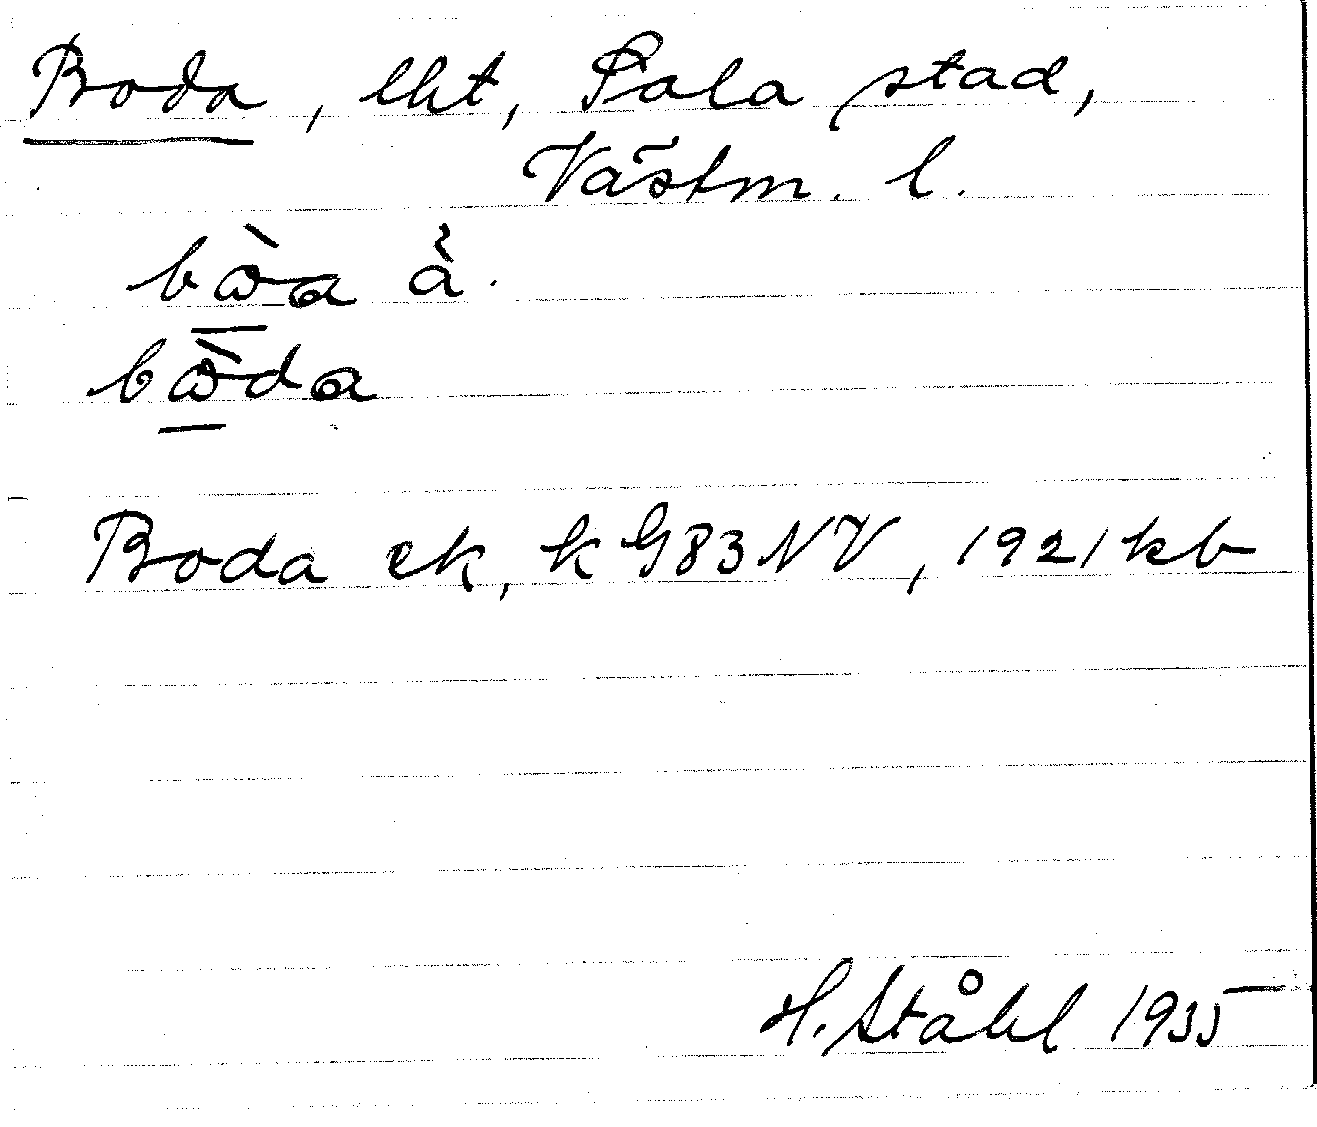 Boda, lht, Sala stad,
Västm. l.
bὼa å̀.
bὼda
Boda ek, k G83NV, 1921 kb
H. Ståhl 1935